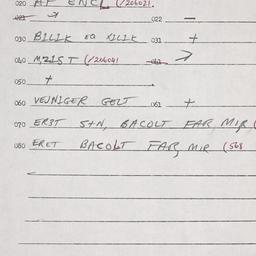 020 AF ENCL (/206021.
022 —
030 BILIK EQ KILIK 031 +
040 MZIST (/206041
050 +
060 VEJNIGER GELT 061 +
070 ERST S+N, BACOLT FAR MIR (
080 ERET BACOLT FAR, MIR (568